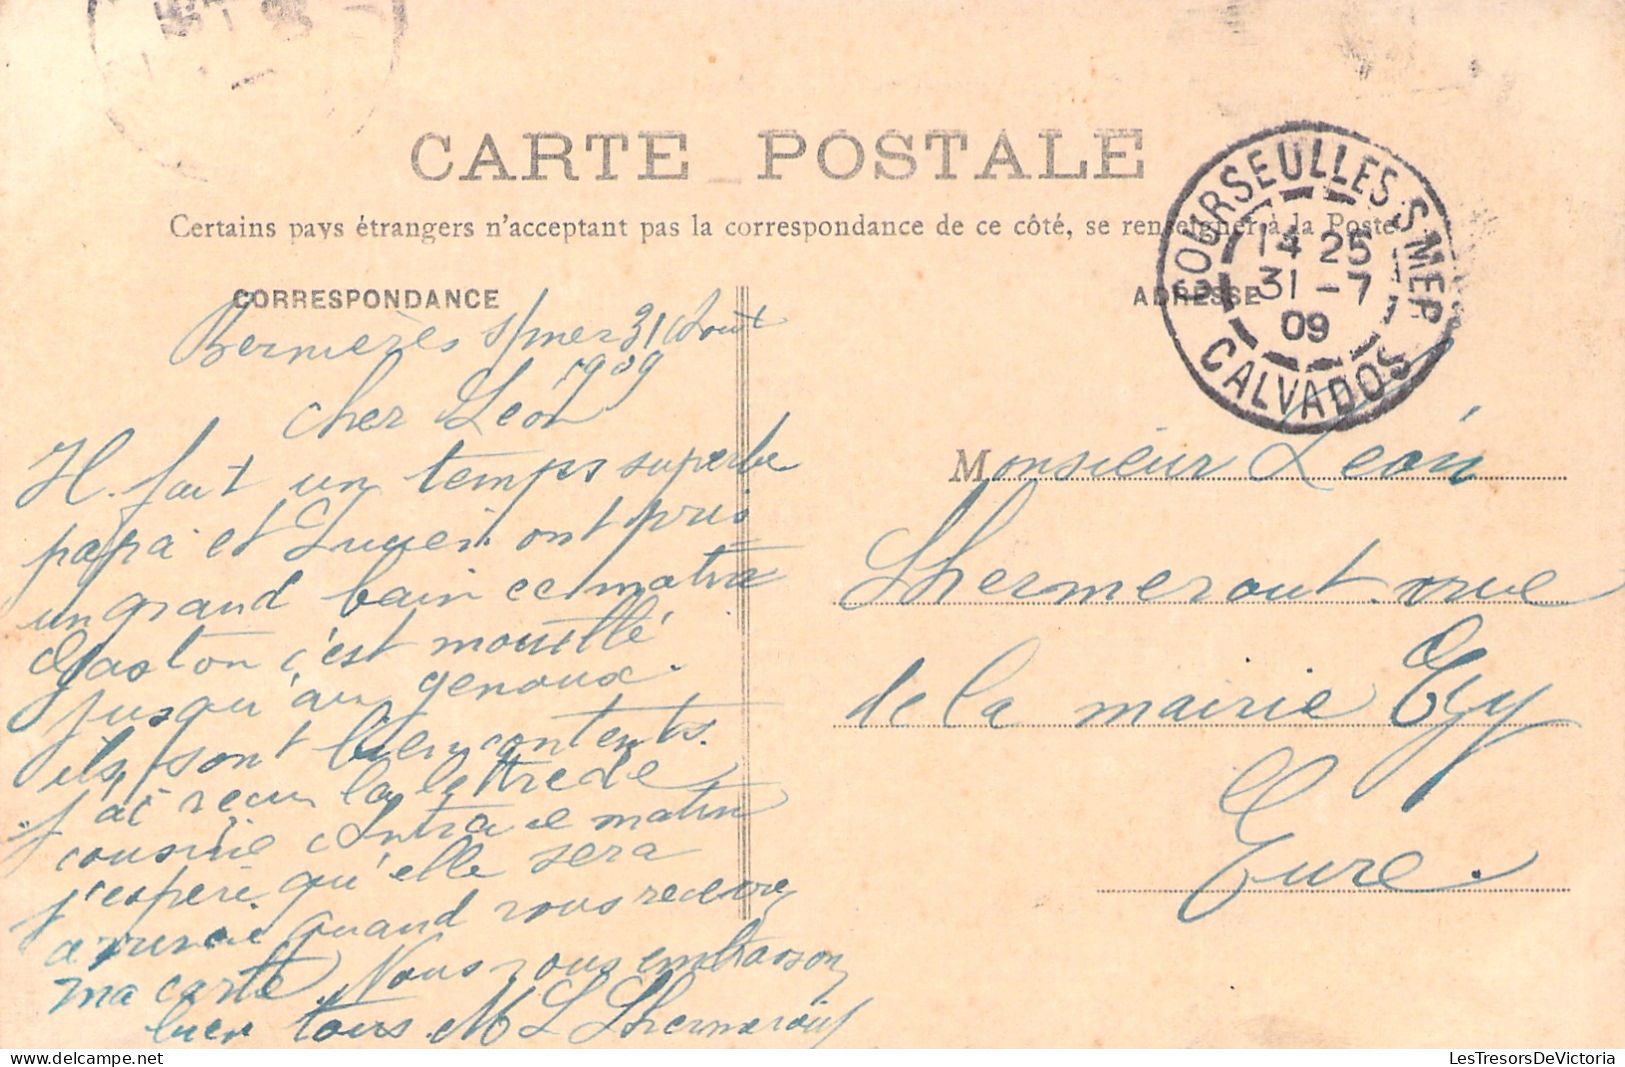 CARTE POSTALE
Certains pays étrangers n'acceptent pas la correspondance de ce côté, se renseigner à la Poste
CORRESPONDANCE
ADRESSE
COURSEULLES S MER
14 25
31 - 7
09
CALVADOS
Bernières s/mer 31 Août
1909
Cher Léon
Il fait un temps superbe
papa et Lucien ont pris
un grand bain ce matin
Gaston c'est mouillé
jusqu'au genoux.
ils sont bien contents.
j'ai reçu la lettre de
cousine ce matin
j'espère qu'elle sera
arrivée quand vous recevrez
ma carte. Nous vous embrassons
bien tous. M L Lhermerout
Monsieur Léon
Lhermerout rue
de la mairie Ezy
Eure.
LesTresorsDeVictoria
delcampe.net